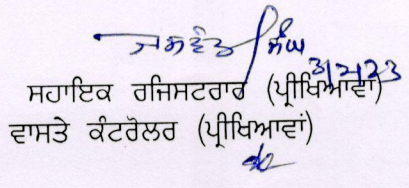 ਜਸਵੰਤ ਸਿੰਘ
ਸਹਾਇਕ ਰਜਿਸਟਰਾਰ (ਪ੍ਰੀਖਿਆਵਾਂ)
ਵਾਸਤੇ ਕੰਟਰੋਲਰ (ਪ੍ਰੀਖਿਆਵਾਂ)